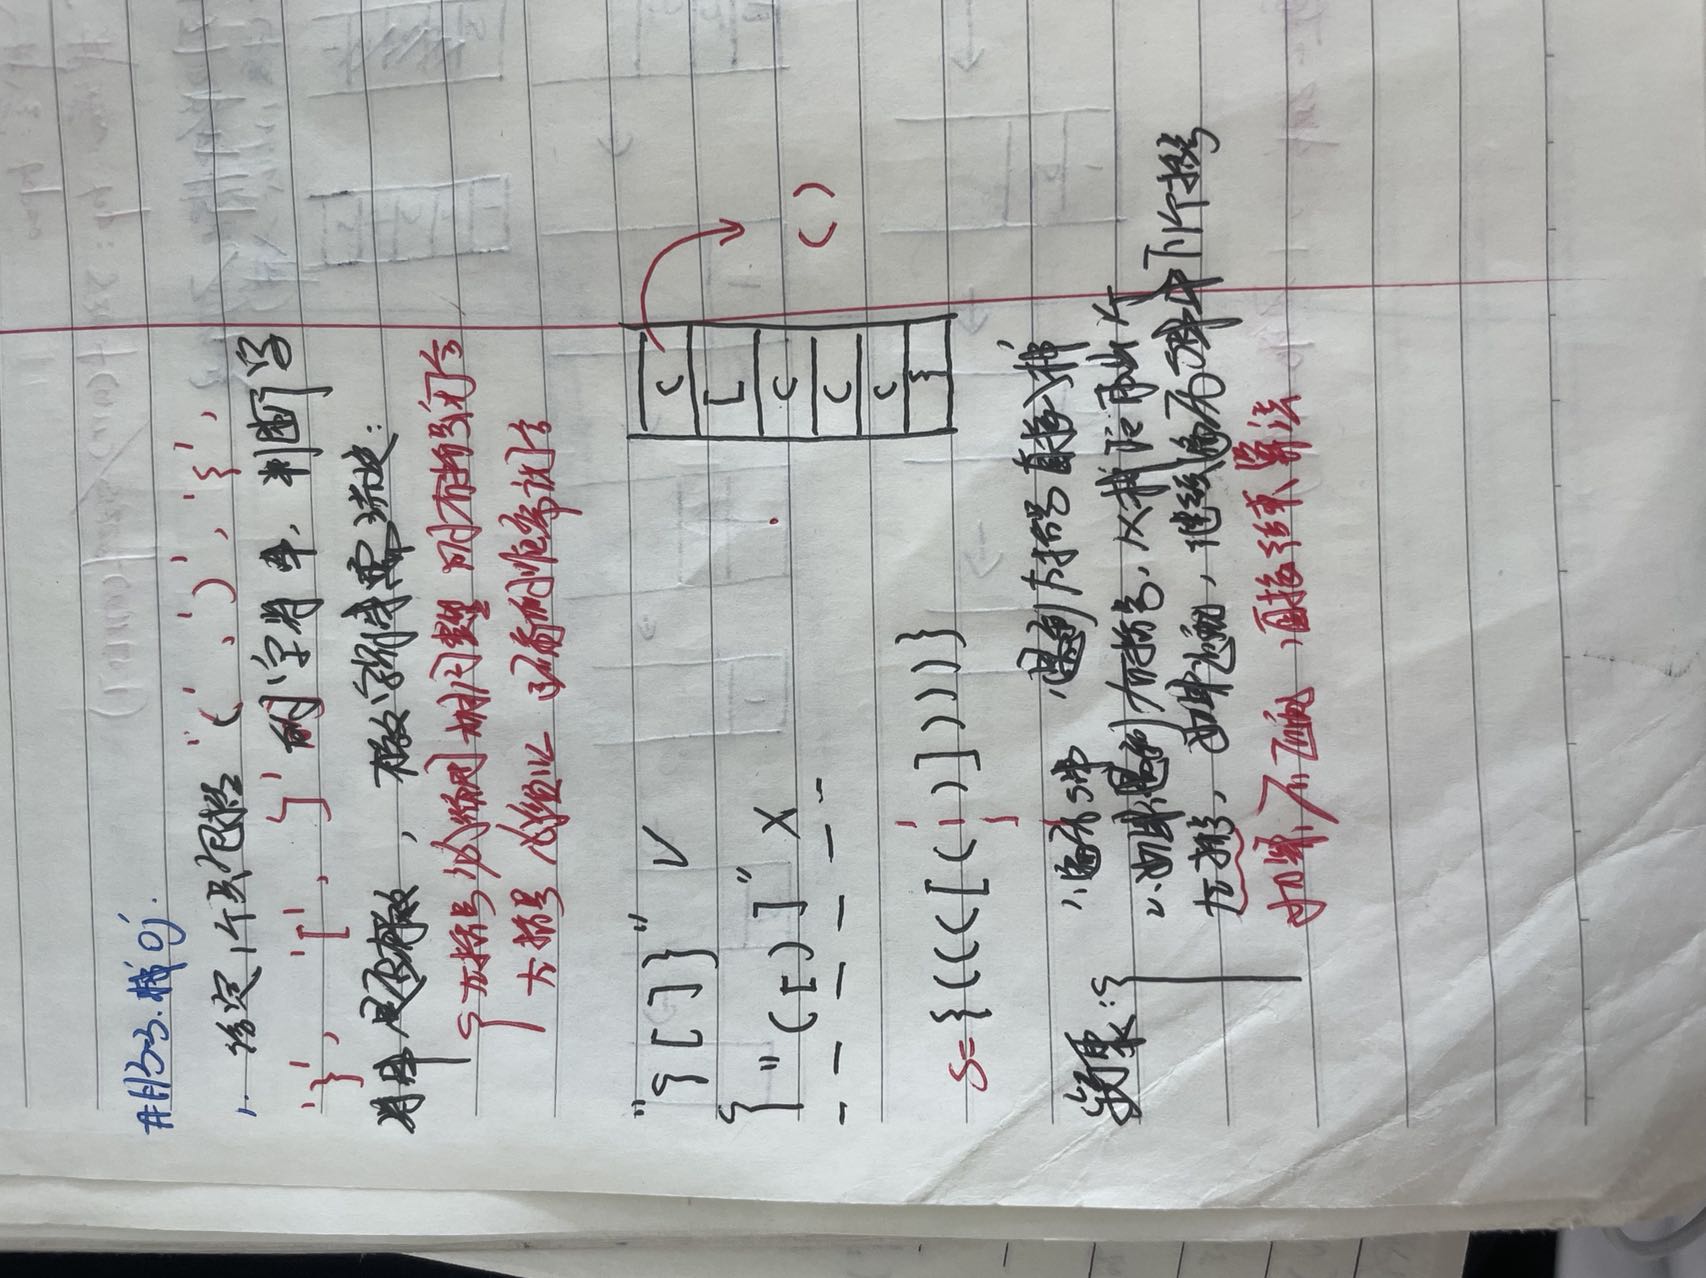 #1133.栈oj.
1. 给定1个只包括 '(', ')', '{',
'}', '[', ']' 的字符串, 判断字
符串是否有效, 有效字符串需满足:
左括号必须用相同类型的右括号闭合
左括号必须以正确的顺序闭合
"{[]}" ✓
"([)]" ×
(
[
(
(
(
{
()
s={((([()])))}
1、遍历s串 遇到左括号直接入栈
2、如果遇到右括号, 从栈顶弹出1个
左括号, 如果匹配, 继续遍历s串中下1个括号
如果不匹配, 直接结束算法